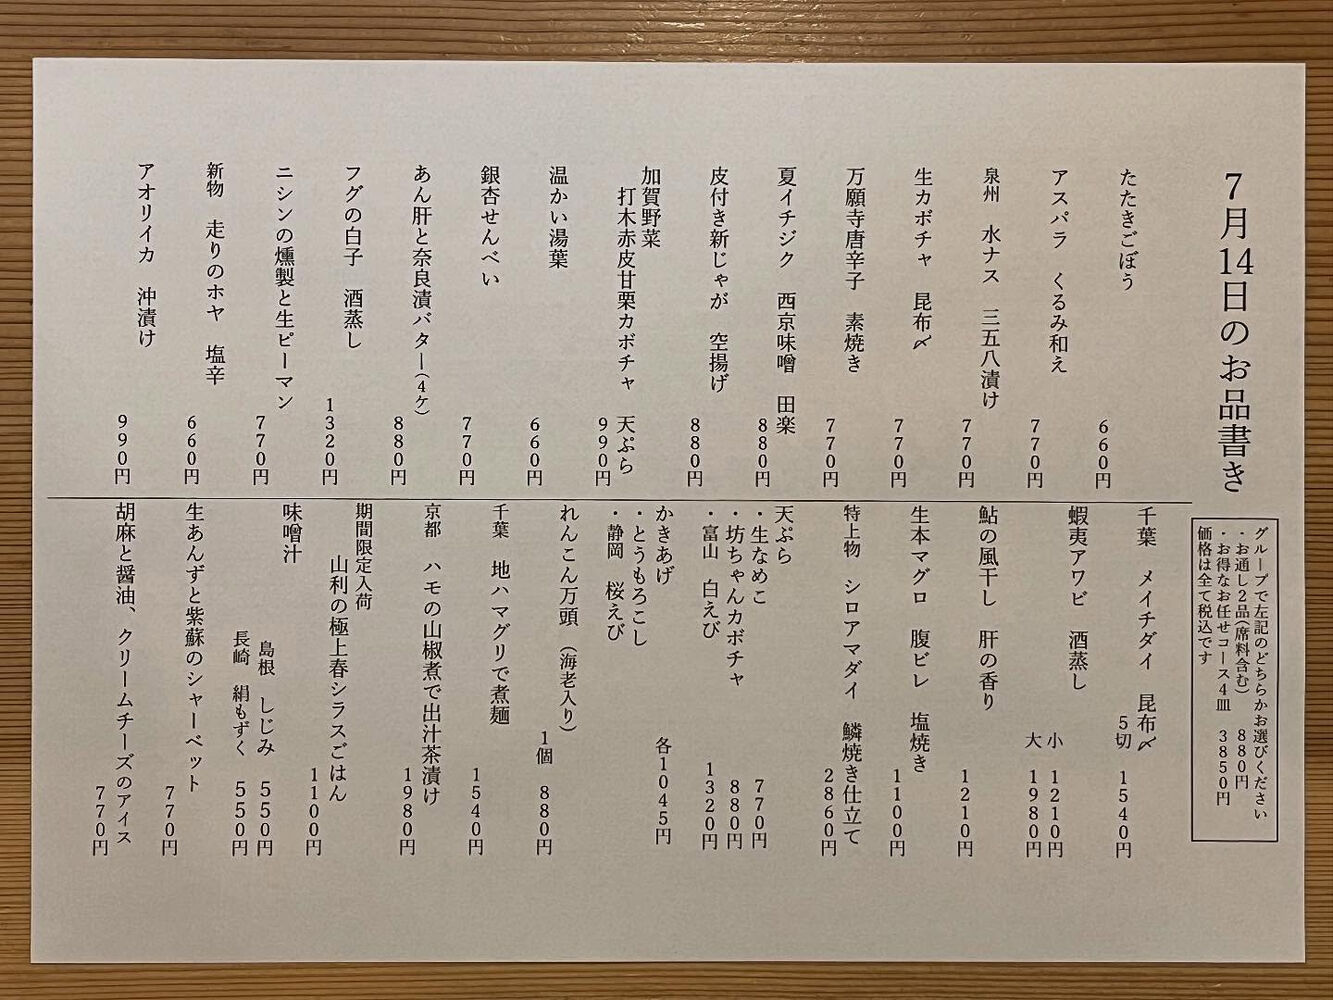 7月14日のお品書き
グループで左記のどちらかお選びください
・お通し2品(席料含む) 880円
・お得なお任せコース4皿 3850円
価格は全て税込です
たたきごぼう 660円
アスパラ くるみ和え 770円
泉州 水ナス 三五八漬け 770円
生カボチャ 昆布〆 770円
万願寺唐辛子 素焼き 770円
夏イチジク 西京味噌 田楽 880円
皮付き新じゃが 空揚げ 880円
加賀野菜
打木赤皮甘栗カボチャ 天ぷら 990円
温かい湯葉 660円
銀杏せんべい 770円
あん肝と奈良漬バター(4ケ) 880円
フグの白子 酒蒸し 1320円
ニシンの燻製と生ピーマン 770円
新物 走りのホヤ 塩辛 660円
アオリイカ 沖漬け 990円
千葉 メイチダイ 昆布〆
5切 1540円
蝦夷アワビ 酒蒸し
小 1210円
大 1980円
鮎の風干し 肝の香り 1210円
生本マグロ 腹ビレ 塩焼き 1100円
特上物 シロアマダイ 鱗焼き仕立て 2860円
天ぷら
・生なめこ 770円
・坊ちゃんカボチャ 880円
・富山 白えび 1320円
かきあげ 各1045円
・とうもろこし
・静岡 桜えび
れんこん万頭 (海老入り)
1個 880円
千葉 地ハマグリで煮麺 1540円
京都 ハモの山椒煮で出汁茶漬け 1980円
期間限定入荷
山利の極上春シラスごはん 1100円
味噌汁
島根 しじみ 550円
長崎 絹もずく 550円
生あんずと紫蘇のシャーベット 770円
胡麻と醤油、クリームチーズのアイス 770円